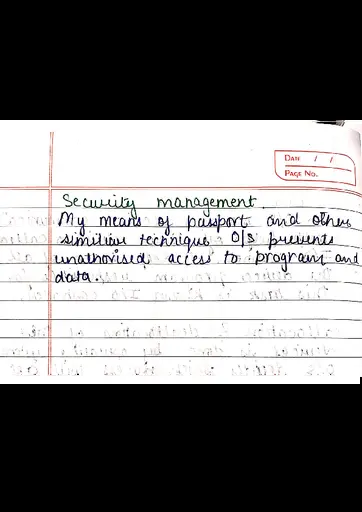 DATE / /
PAGE NO.
Security management.
My means of passport and other
similiar technique O/S prevents
unathorised access to program and
data.